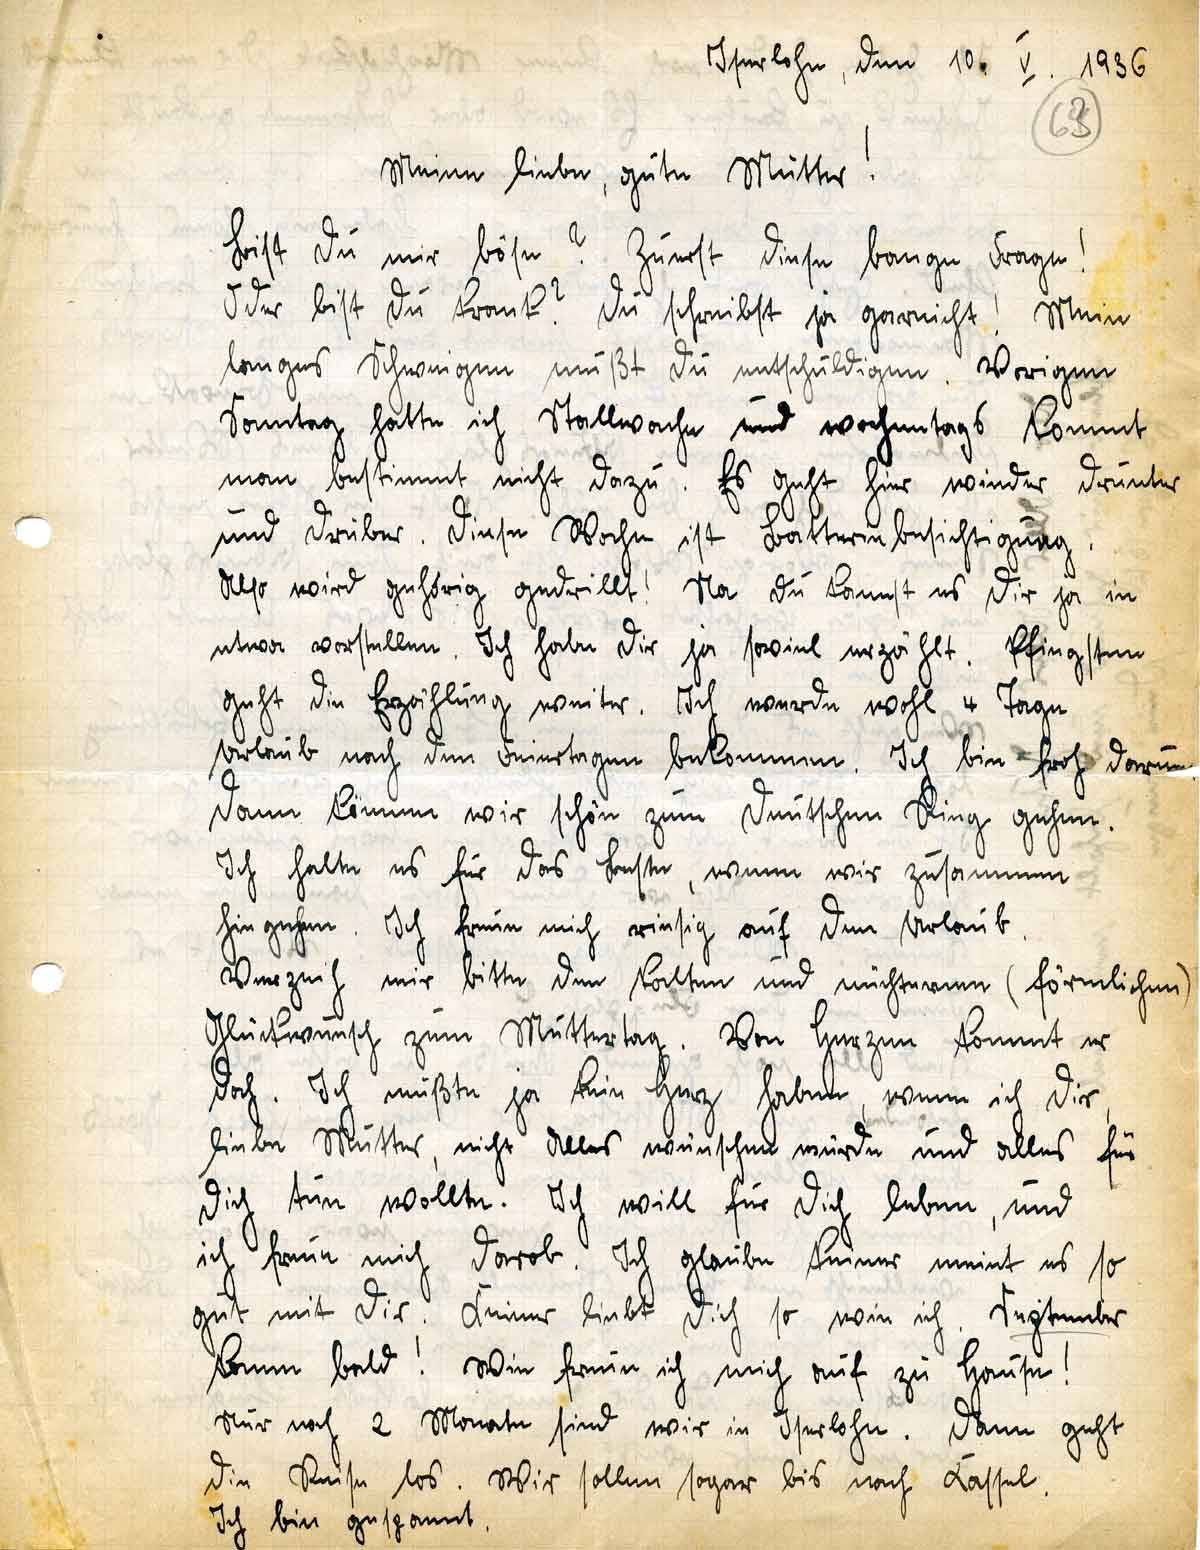 Iserlohn, den 10. V. 1936
63
Meine liebe, gute Mutter!
Bist Du mir böse? Zuerst diese bange Frage!
Oder bist Du krank? Du schreibst ja garnicht! Mein
langes Schweigen mußt Du entschuldigen. Vorigen
Sonntag hatte ich Stallwache und wochentags kommt
man bestimmt nicht dazu. Es geht hier wieder drunter
und drüber. Diese Woche ist Batteriebesichtigung.
Also wird gehörig gedrillt! Na Du kannst es Dir ja in
etwa vorstellen. Ich habe Dir ja soviel erzählt. Pfingsten
geht die Erzählung weiter. Ich werde wohl 4 Tage
Urlaub nach den Feiertagen bekommen. Ich bin froh darum
dann können wir schön zum Deutschen Ring gehen.
Ich halte es für das Beste, wenn wir zusammen
hingehen. Ich freue mich riesig auf den Urlaub.
Verzeih mir bitte den kalten und nüchternen (förmlichen)
Glückwunsch zum Muttertag. Von Herzen kommt er
doch. Ich müßte ja kein Herz haben, wenn ich Dir,
liebe Mutter, nicht Alles wünschen würde und alles für
Dich tun wollte. Ich will für Dich leben, und
ich freue mich darob. Ich glaube keiner meint es so
gut mit Dir. Keiner liebt Dich so wie ich. September
komm bald! Wie freue ich mich auf zu Hause!
Nur noch 2 Monate sind wir in Iserlohn. Dann geht
die Reise los. Wir sollen sogar bis nach Kassel.
Ich bin gespannt.